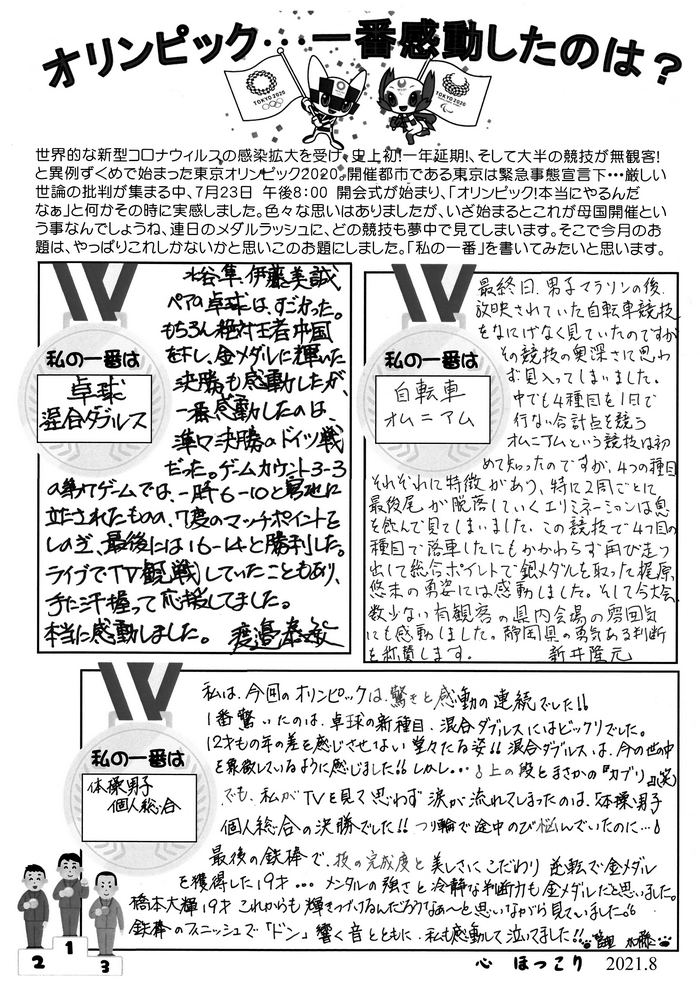 オリンピック…一番感動したのは?
TOKYO 2020
TOKYO 2020
世界的な新型コロナウィルスの感染拡大を受け、史上初!一年延期!、そして大半の競技が無観客!
と異例ずくめで始まった東京オリンピック2020。開催都市である東京は緊急事態宣言下…厳しい
世論の批判が集まる中、7月23日 午後8:00 開会式が始まり、「オリンピック!本当にやるんだ
なぁ」と何かその時に実感しました。色々な思いはありましたが、いざ始まるとこれが母国開催とい
う事なんでしょうね、連日のメダルラッシュに、どの競技も夢中で見てしまいます。そこで今月のお
題は、やっぱりこれしかないかと思いこのお題にしました。「私の一番」を書いてみたいと思います。
私の一番は
卓球
混合ダブルス
水谷隼、伊藤美誠
ペアの卓球は、すごかった。
もちろん絶対王者中国
を下し、金メダルに輝いた
決勝も感動したが、
一番感動したのは、
準々決勝のドイツ戦
だった。ゲームカウント3-3
の第7ゲームでは、一時6-10と窮地に
立たされたものの、7度のマッチポイントを
しのぎ、最後には16-14と勝利した。
ライブでTV観戦していたこともあり、
手に汗握って応援してました。
本当に感動しました。
私の一番は
自転車
オムニアム
最終日、男子マラソンの後、
放映されていた自転車競技
をなにげなく見ていたのですが
その競技の奥深さに思わ
ず見入ってしまいました。
中でも4種目を1日で
行ない合計点を競う
オムニアムという競技は初
めて知ったのですが、4つの種目
それぞれに特徴があり、特に2周ごとに
最後尾が脱落していくエリミネーションは息
を飲んで見てしまいました。この競技で4つ目の
種目で落車したにもかかわらず再び走り
出して総合ポイントで銀メダルを取った梶原
悠未の勇姿には感動しました。そして今大会
数少ない有観客の県内会場の雰囲気
にも感動しました。静岡県の勇気ある判断
を称賛します。 新井隆元
私の一番は
体操男子
個人総合
私は、今回のオリンピックは、驚きと感動の連続でした!!
1番驚いたのは、卓球の新種目、混合ダブルスにはビックリでした。
12才もの年の差を感じさせない堂々たる姿!!混合ダブルスは、今の世の中
を象徴しているように感じました!!しかし…上の段とまさかの『カブリ』(笑)
でも、私がTVを見て思わず涙が流れてしまったのは、「体操男子
個人総合の決勝でした!! つり輪で途中のび悩んでいたのに…
最後の鉄棒で、技の完成度と美しさにこだわり逆転で金メダル
を獲得した19才…メンタルの強さと冷静な判断力も金メダルだと思いました。
橋本大輝19才これからも輝きつづけるんだろうなあ〜と思いながら見ていました。
鉄棒のフィニッシュで「ドン」響く音とともに、私も感動して泣いてました!! 加藤
2 1 3
心 ほっこり 2021.8